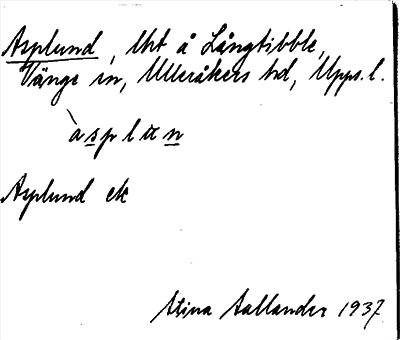 Asplund, Uht å Långtibble,
Vänge sn, Ulleråkers hd, Upps. l.
àsplun
Asplund ek
Stina Aallander 1937